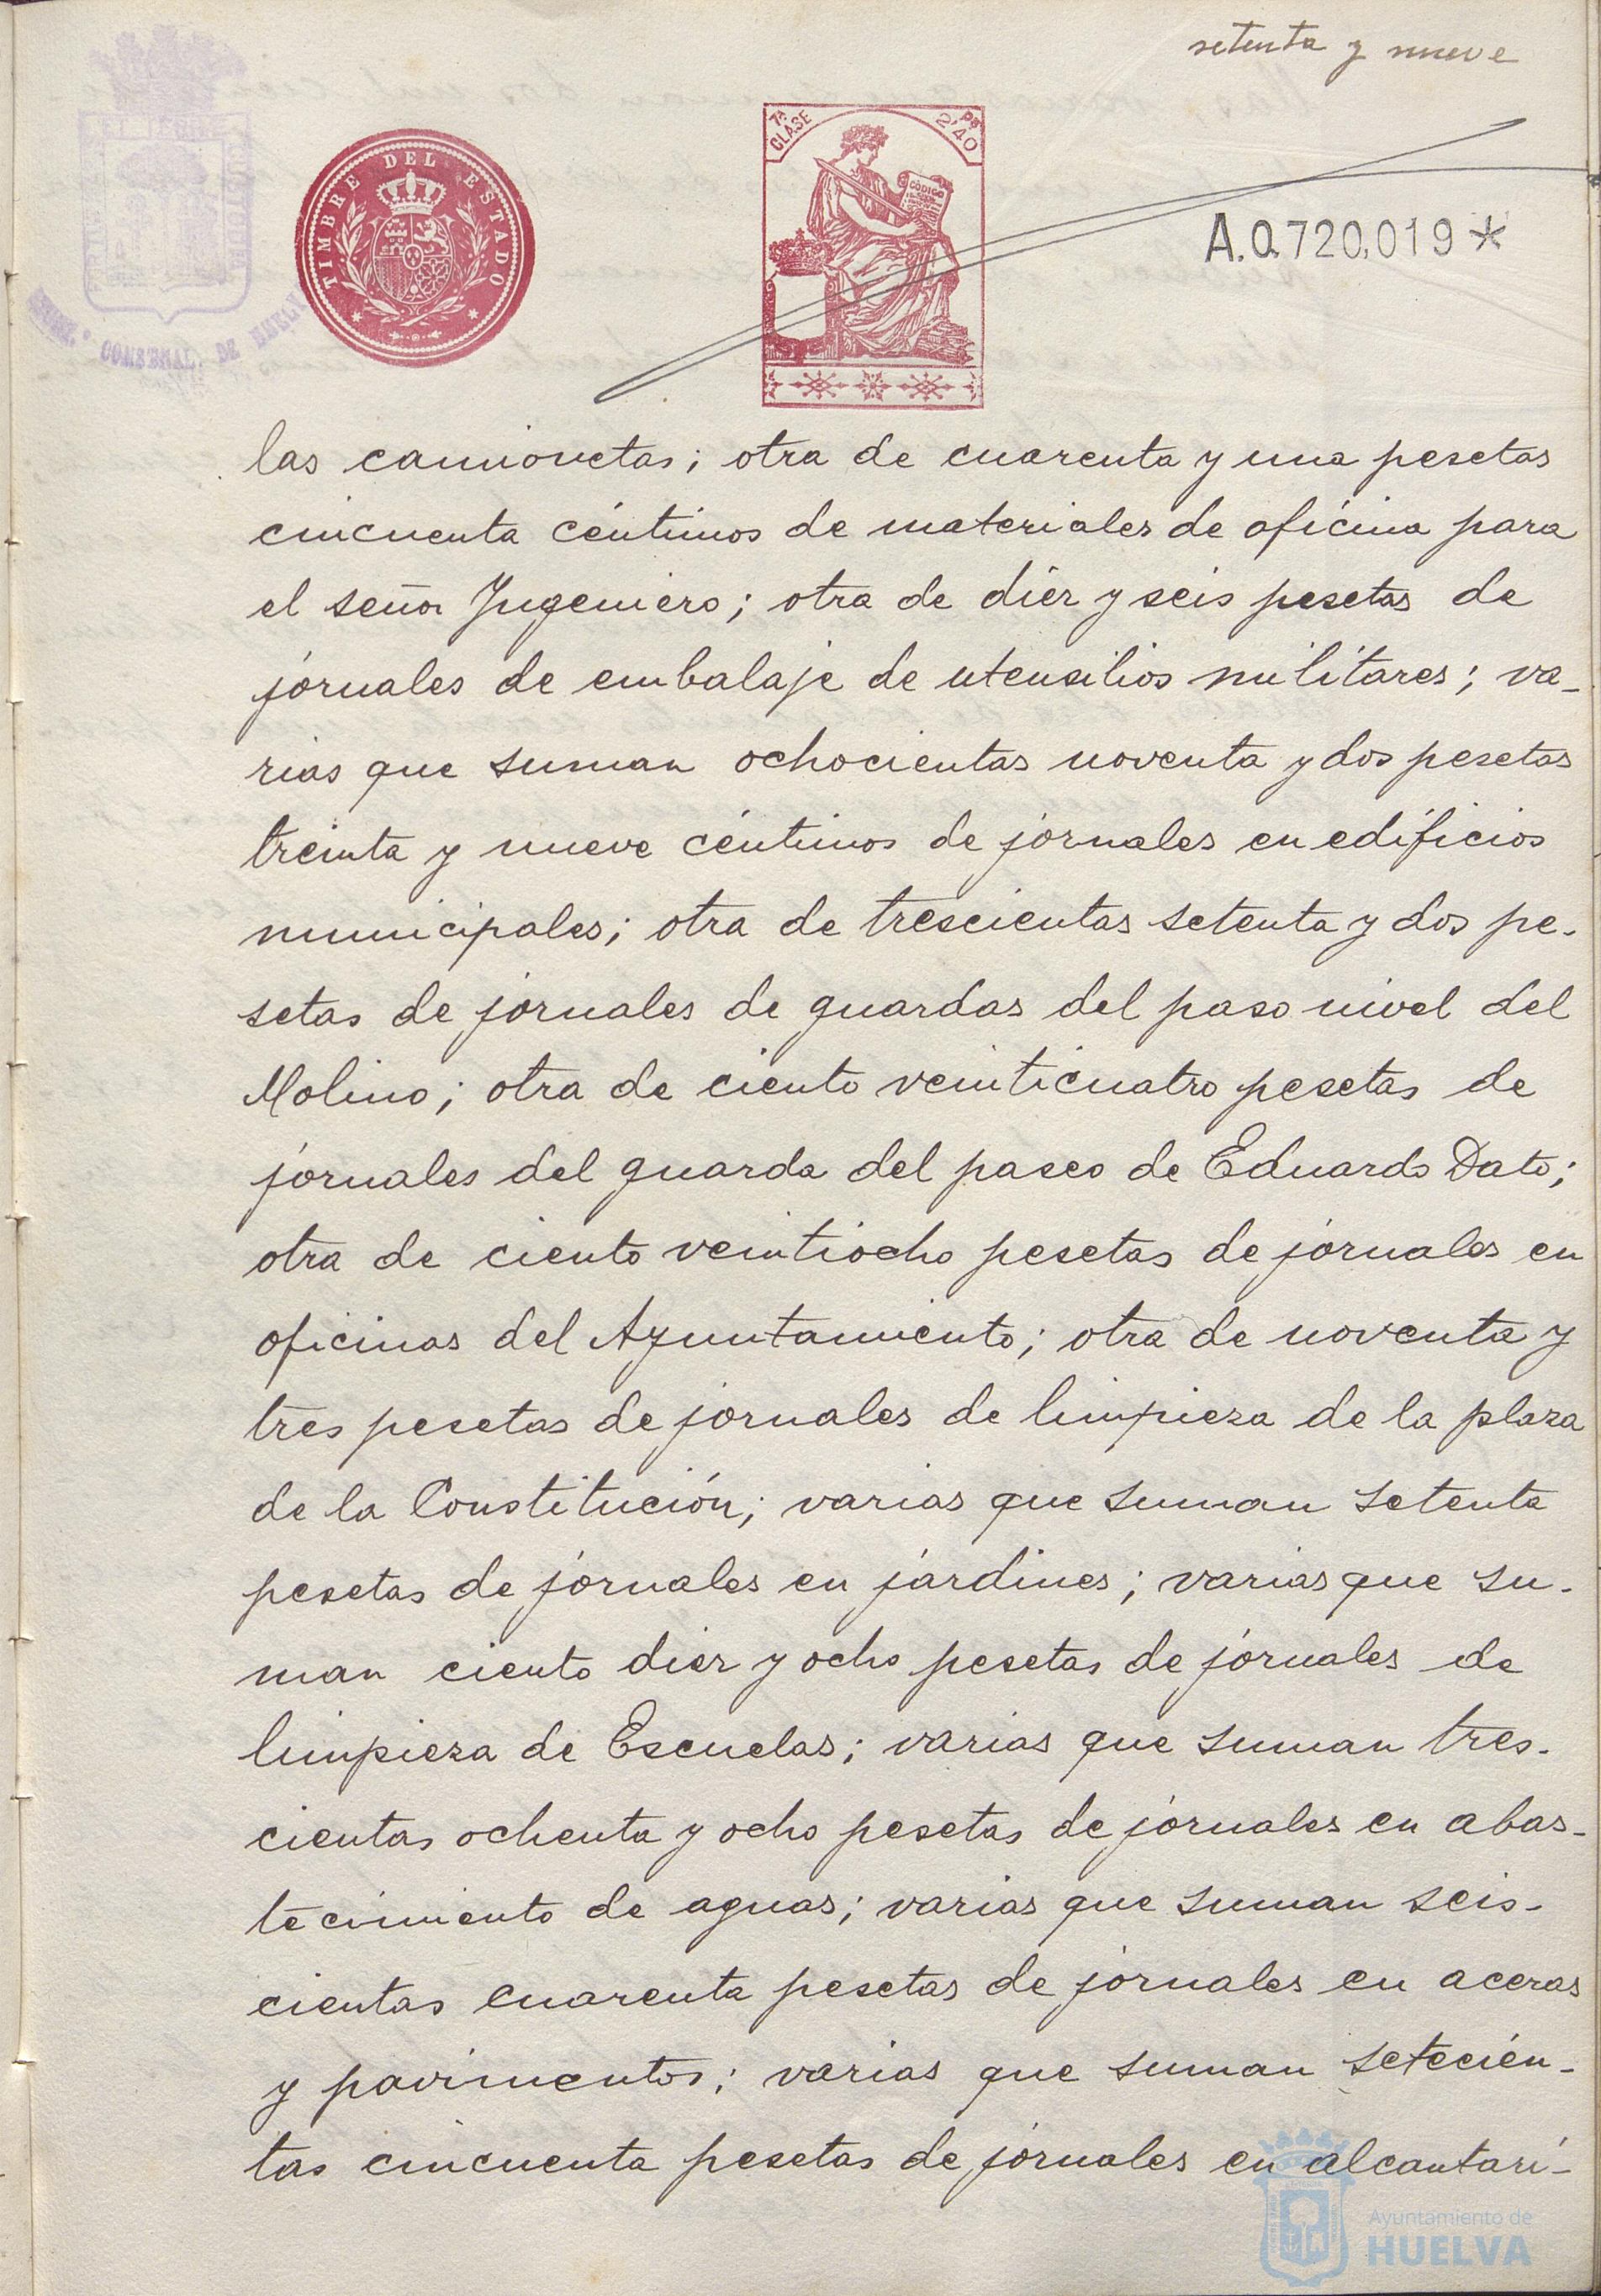 setenta y nueve
7ª CLASE
Ps 2'40
TIMBRE DEL ESTADO
CÓDIGO
A.0.720,019*
CONSENAL. DE HUELVA
las camionetas; otra de cuarenta y una pesetas
cincuenta céntimos de materiales de oficina para
el señor Ingeniero; otra de diez y seis pesetas de
jornales de embalaje de utensilios militares; va-
rias que suman ochocientas noventa y dos pesetas
treinta y nueve céntimos de jornales en edificios
municipales; otra de trescientas setenta y dos pe-
setas de jornales de guardas del paso nivel del
Molino; otra de ciento veinticuatro pesetas de
jornales del guarda del paseo de Eduardo Dato;
otra de ciento veintiocho pesetas de jornales en
oficinas del Ayuntamiento; otra de noventa y
tres pesetas de jornales de limpieza de la plaza
de la Constitución; varias que suman setenta
pesetas de jornales en jardines; varias que su-
man ciento diez y ocho pesetas de jornales de
limpieza de Escuelas; varias que suman tres-
cientas ochenta y ocho pesetas de jornales en abas-
tecimiento de aguas; varias que suman seis-
cientas cuarenta pesetas de jornales en aceras
y pavimentos; varias que suman setecien-
tas cincuenta pesetas de jornales en alcantari-
Ayuntamiento de
HUELVA